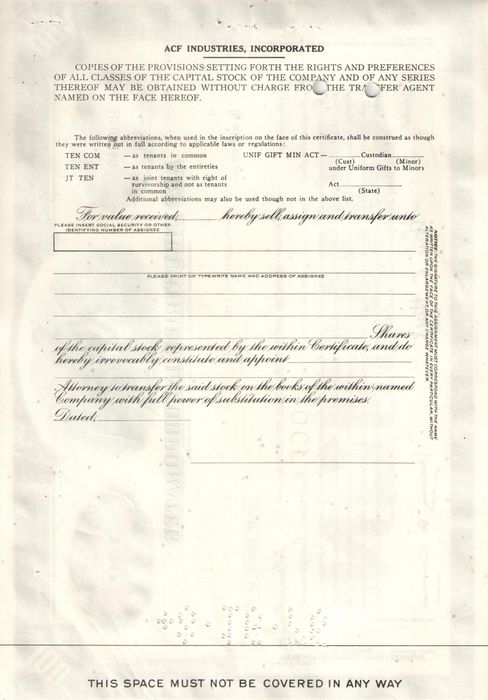 ACF INDUSTRIES, INCORPORATED
COPIES OF THE PROVISIONS SETTING FORTH THE RIGHTS AND PREFERENCES
OF ALL CLASSES OF THE CAPITAL STOCK OF THE COMPANY AND OF ANY SERIES
THEREOF MAY BE OBTAINED WITHOUT CHARGE FROM THE TRANSFER AGENT
NAMED ON THE FACE HEREOF.
The following abbreviations, when used in the inscription on the face of this certificate, shall be construed as though
they were written out in full according to applicable laws or regulations:
TEN COM — as tenants in common
TEN ENT — as tenants by the entireties
JT TEN — as joint tenants with right of
survivorship and not as tenants
in common
UNIF GIFT MIN ACT — Custodian
(Cust) (Minor)
under Uniform Gifts to Minors
Act
(State)
Additional abbreviations may also be used though not in the above list.
For value received, hereby sell, assign and transfer unto
PLEASE INSERT SOCIAL SECURITY OR OTHER
IDENTIFYING NUMBER OF ASSIGNEE
PLEASE PRINT OR TYPEWRITE NAME AND ADDRESS OF ASSIGNEE
Shares
of the capital stock represented by the within Certificate, and do
hereby irrevocably constitute and appoint
Attorney to transfer the said stock on the books of the within named
Company with full power of substitution in the premises.
Dated,
NOTICE: THE SIGNATURE TO THIS ASSIGNMENT MUST CORRESPOND WITH THE NAME
AS WRITTEN UPON THE FACE OF THE CERTIFICATE IN EVERY PARTICULAR, WITHOUT
ALTERATION OR ENLARGEMENT OR ANY CHANGE WHATEVER.
THIS SPACE MUST NOT BE COVERED IN ANY WAY